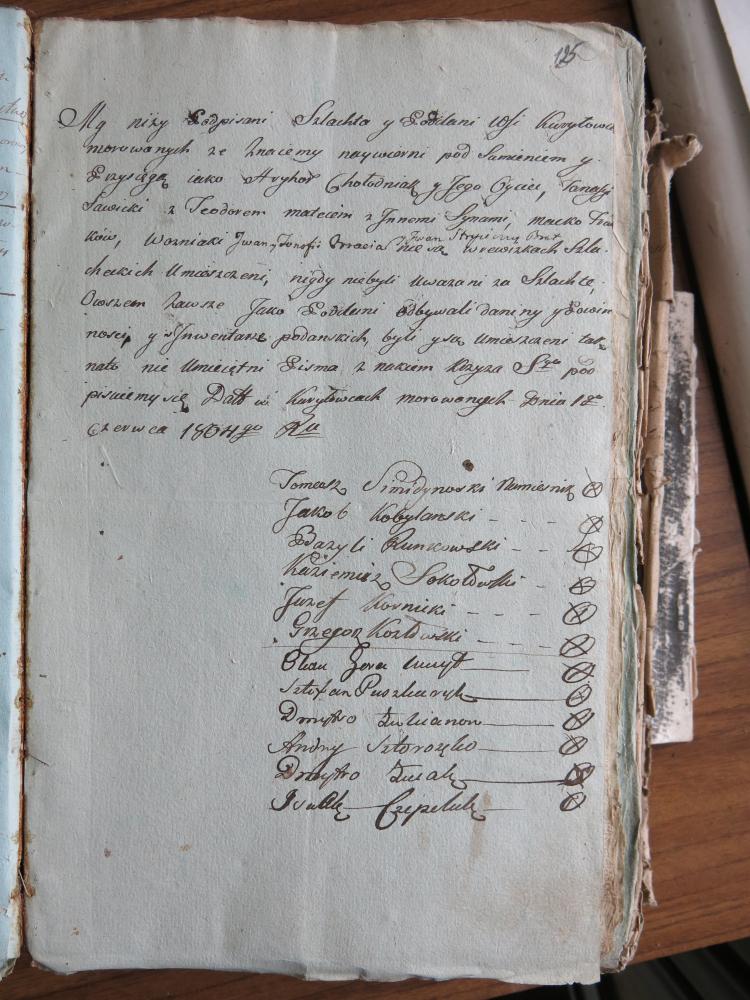 125
My niży Podpisani Szlachta y Poddani Wsi Kuryłowce
morowanych ze Znaiemy naywierni pod Sumieniem y
Przysięgą iako Aryhor Chołodniak y Jego Oyciec, Tanasy
Sawicki z Teodorem z Innemi Synami, macko
ków, Wozniaki Jwan, Jozofii Bracia y Jwan Brat nie są w rewizkach Szla-
checkich Umieszczeni, nigdy niebyli Uwazani za Szlachtę,
Owszem Zawsze Jako Poddani Odbywali daniny y Powin
nosci, y w Jnwentarze podanskich byli y są Umieszczeni tak
nato nie Umieiętni Pisma z nakiem Krzyza Sgo pod
pisuiemy się Datt w Kuryłowcach morowanych Dnia 18o
Czerwca 1804go Ru
Tomasz Namiesnik
Jakob Kobylanski
Bazyli Runkowski
Kaziemirz Sokołowski
Juzef Kornicki
Grzegorz Kozłowski
Gora Wuyt
Sztefan Puszkaryk
Dmytro
Andry Storozko
Dmytro
Czepeluk